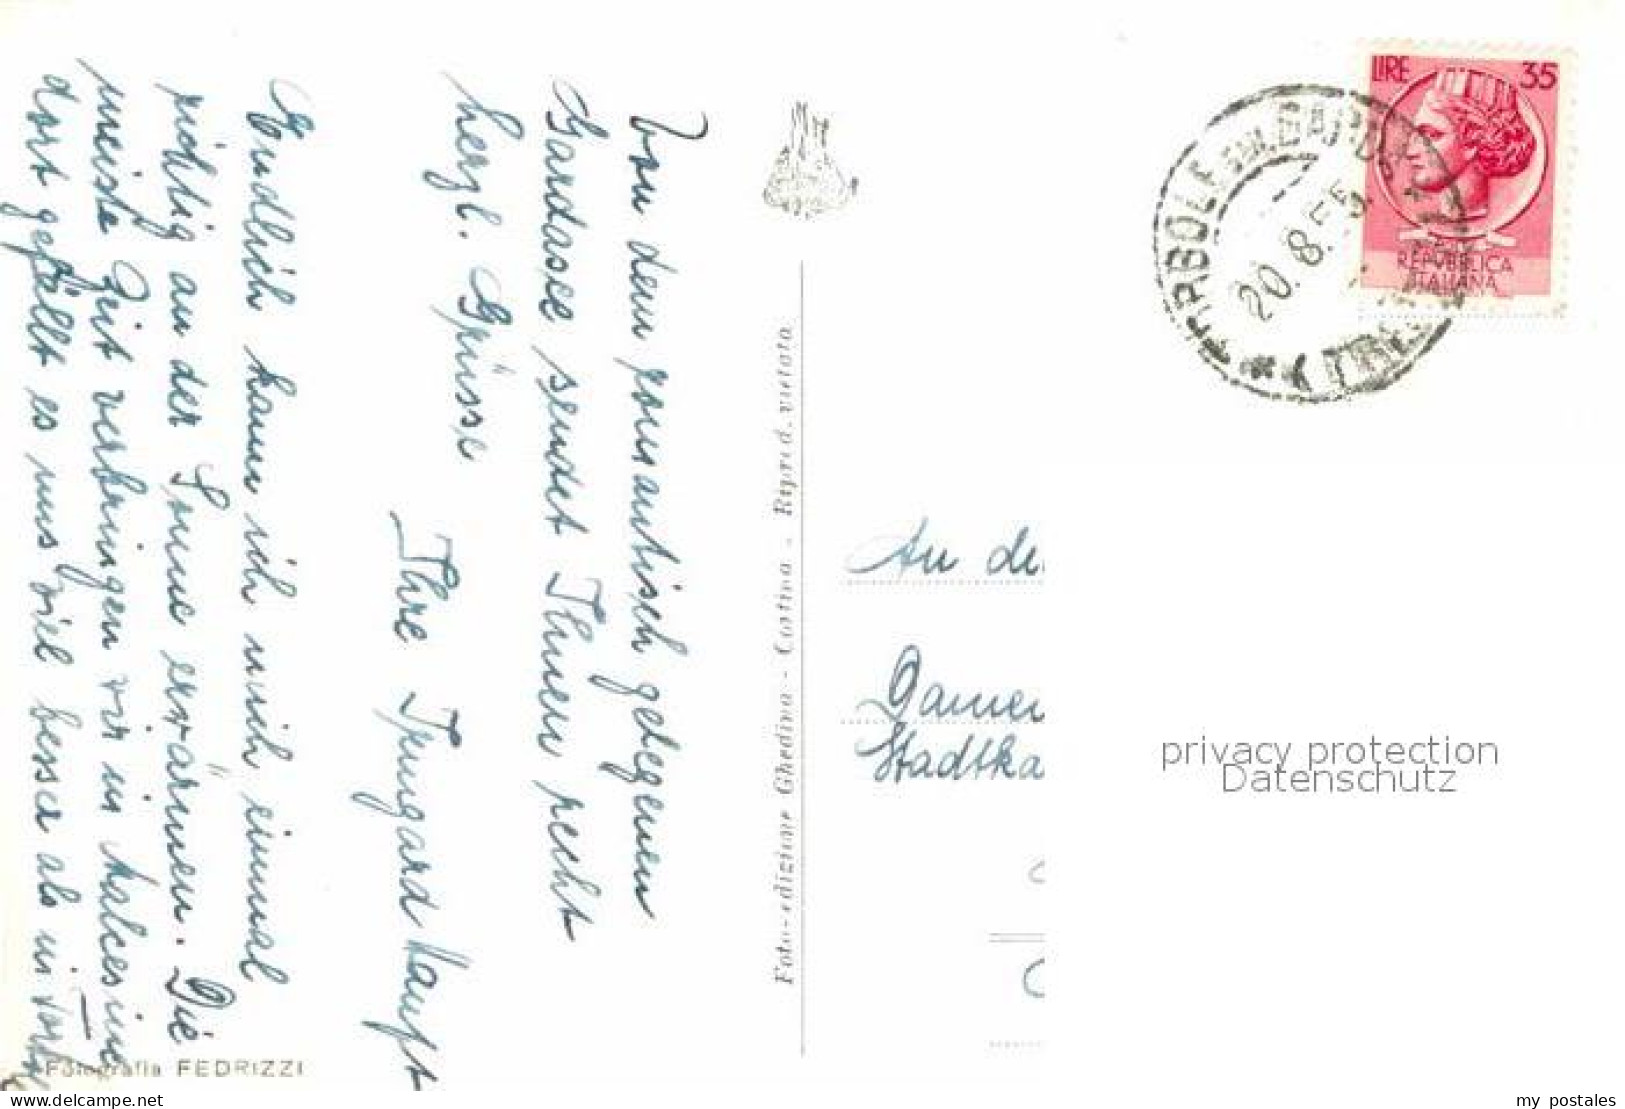 Von dem romantisch gelegenen
Gardasee sendet Ihnen recht
herzl. Grüsse
Ihre Irmgard Haupt
Endlich kann ich mich einmal
richtig an der Sonne erwärmen. Die
meiste Zeit verbringen wir in Malcesine
dort gefällt es uns viel besser als in Torb
Fotografia FEDRIZZI
Foto-edizione Ghedina - Cortina - Riprod. vietata
LIRE 35
REPVBBLICA
ITALIANA
20.8.55
An de
Damen
Stadtka
privacy protection
Datenschutz
my postales